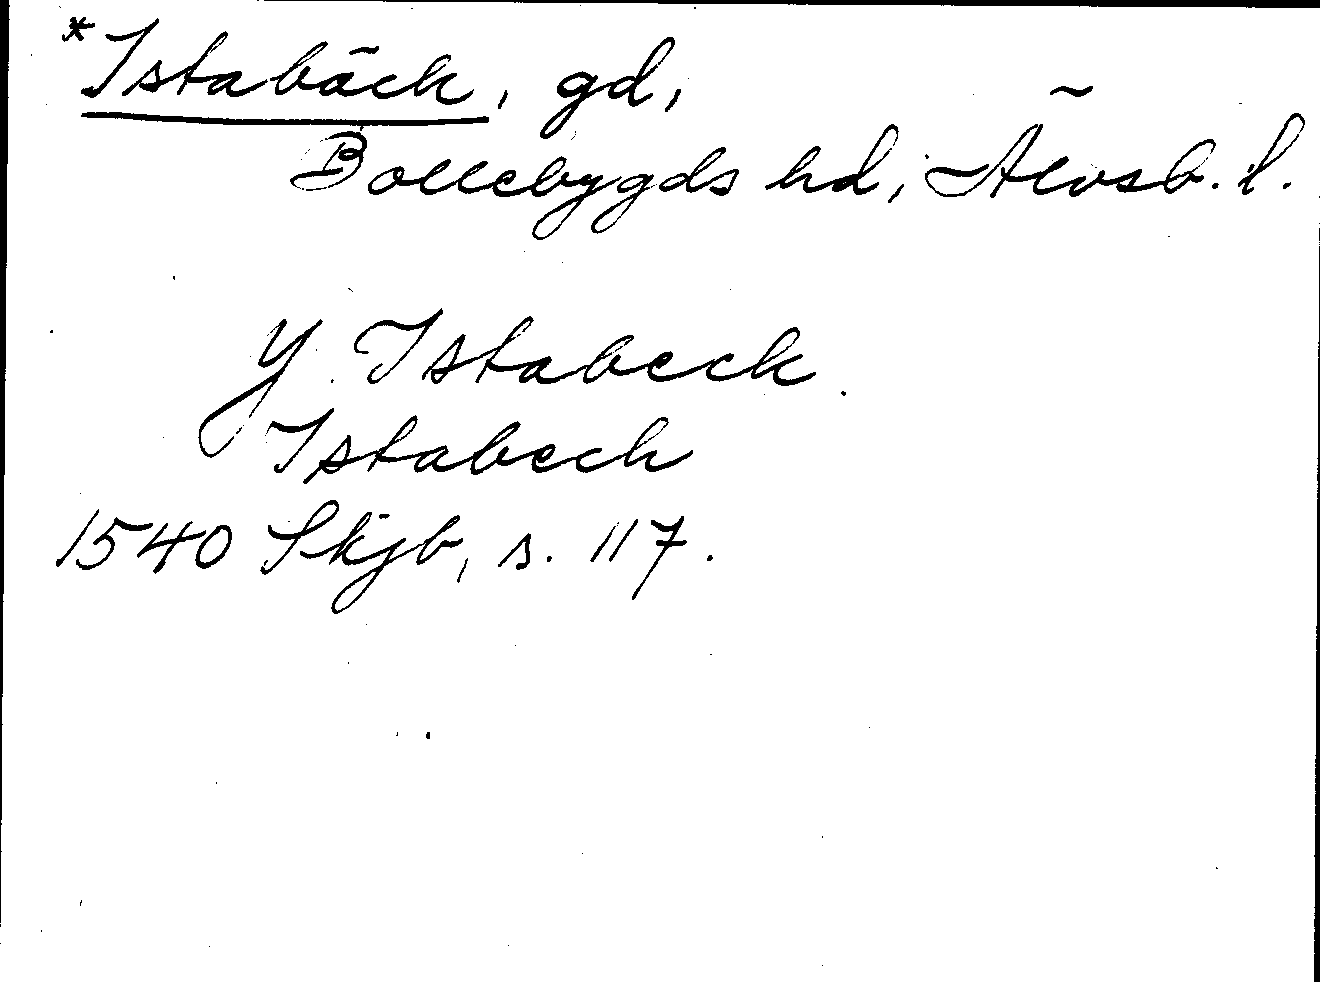 *Istabäck, gd,
Bollebygds hd, Älvsb. l.
Y Istabeck
Istabech
1540 Skjb, s. 117.